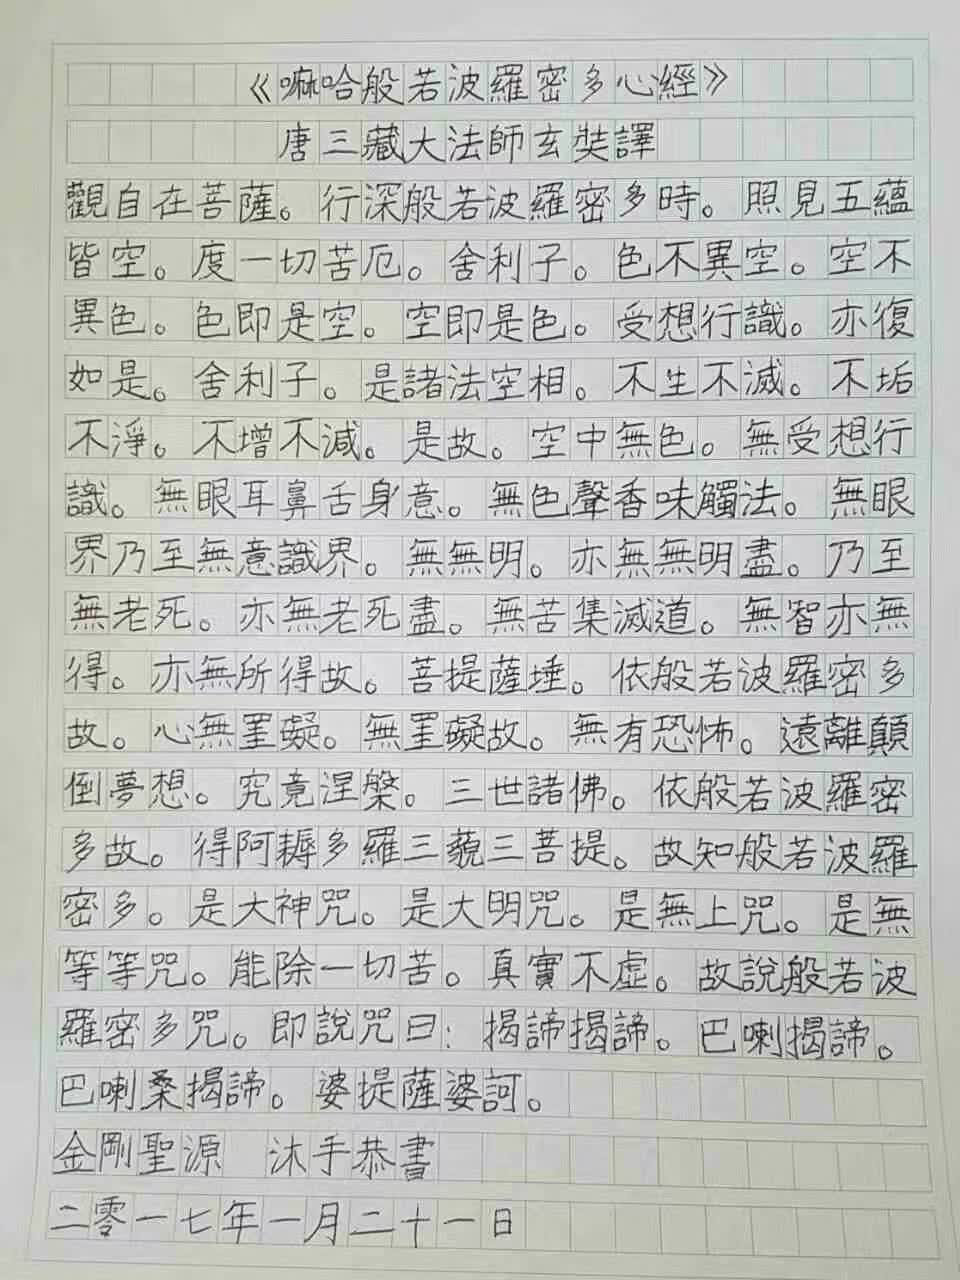 《嘛哈般若波羅密多心經》
唐三藏大法師玄奘譯
觀自在菩薩。行深般若波羅密多時。照見五蘊
皆空。度一切苦厄。舍利子。色不異空。空不
異色。色即是空。空即是色。受想行識。亦復
如是。舍利子。是諸法空相。不生不滅。不垢
不淨。不增不減。是故。空中無色。無受想行
識。無眼耳鼻舌身意。無色聲香味觸法。無眼
界乃至無意識界。無無明。亦無無明盡。乃至
無老死。亦無老死盡。無苦集滅道。無智亦無
得。亦無所得故。菩提薩埵。依般若波羅密多
故。心無罣礙。無罣礙故。無有恐怖。遠離顛
倒夢想。究竟涅槃。三世諸佛。依般若波羅密
多故。得阿耨多羅三藐三菩提。故知般若波羅
密多。是大神咒。是大明咒。是無上咒。是無
等等咒。能除一切苦。真實不虛。故說般若波
羅密多咒。即說咒曰：揭諦揭諦。巴喇揭諦。
巴喇桑揭諦。婆提薩婆訶。
金剛聖源 沐手恭書
二零一七年一月二十一日